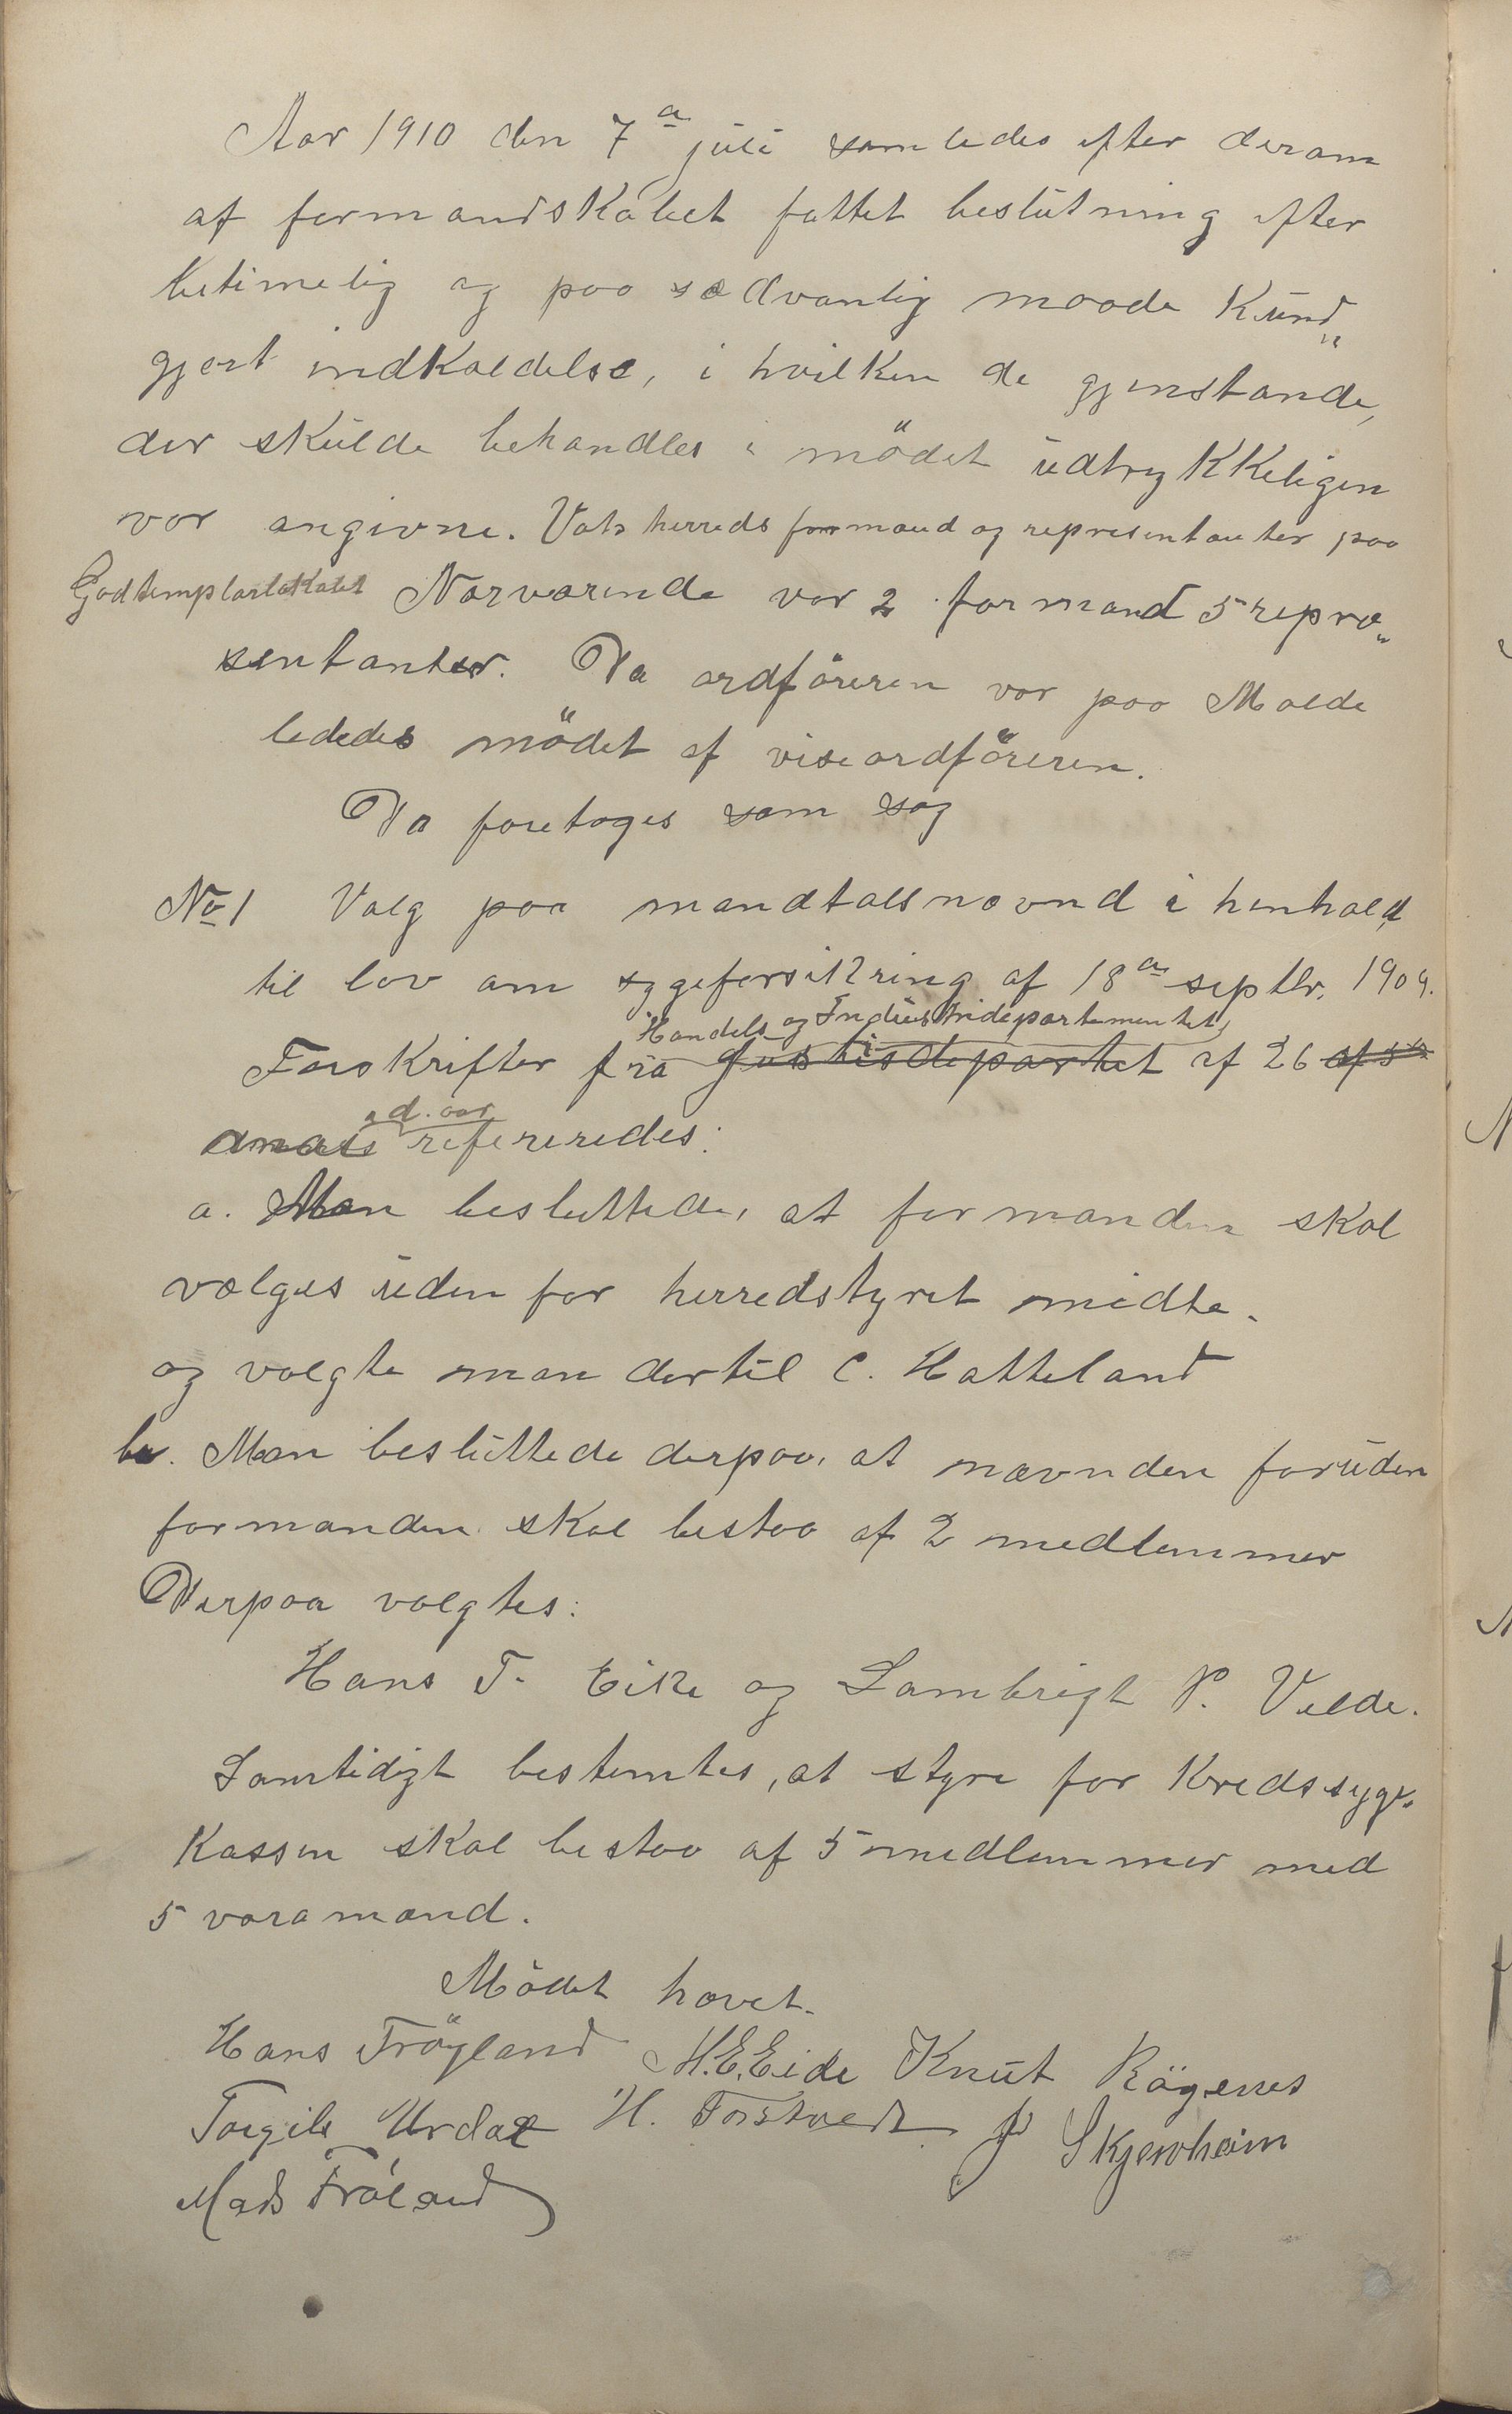 Aar 1910 den 7de juli samledes efter derom
af formandskabet fattet beslutning efter
betimelig og paa sædvanlig maade kund„
gjort indkaldelse, i hvilken de gjenstande,
der skulde behandles i mödet udtrykkeligen
var angivne. Vats herreds formænd og representanter paa
Godtemplarlokalet Nærværende var 2 formænd 5 repræ„
sentanter. Da ordföreren var paa Molde
lededes mödet af viseordföreren.
Da foretoges som sag
No 1 Valg paa mandtalsnævnd i henhold
til lov om sygeforsikring af 18de septbr. 1909.
Handels og Industridepartementet,
Forskrifter fra Justisdepartet af 26
d. aar
refereredes:
a. Man besluttede, at formanden skal
vælges uden for herredstyret midte.
og valgte man dertil C. Hatteland
b. Man besluttede derpaa, at nævnden foruden
formanden skal bestaa af 2 medlemmer
Derpaa valgtes:
Hans T. Eike og Lambrigt P. Velde.
Samtidigt bestemtes, at styre for Kredssyge„
kassen skal bestaa af 5 medlemmer med
5 varamænd.
Mödet hævet.
Hans Fröyland M.E.Eide Knut Rögenes
Torgils Urdal H. Forstvedt J Skjerheim
Mads Fröland